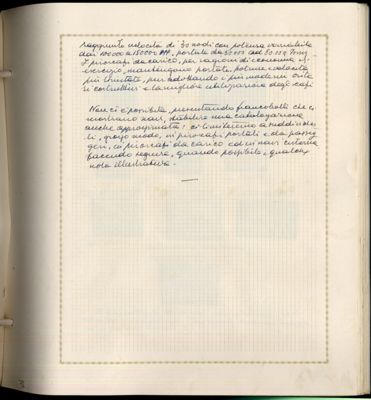 raggiunto velocità di 30 nodi con potenza variabile
dai 100000 a 150000 HP, portate da 50000 ad 80.000 Tonn
I piroscafi da carico, per ragioni di economia di
esercizio, mantengono portate, potenze e velocità
più limitate pur adottando i più moderni criteri
costruttivi e la migliore utilizzazione degli scafi
Non ci è possibile, presentando francobolli che ci
mostrano navi, stabilire una catalogazione
anche approssimata: ci limiteremo a suddividerli
, grosso modo, in piroscafi postali e da passeg
geri, in piroscafi da carico ed in navi cisterna
facendo seguire, quando possibile, qualche
nota illustrativa.